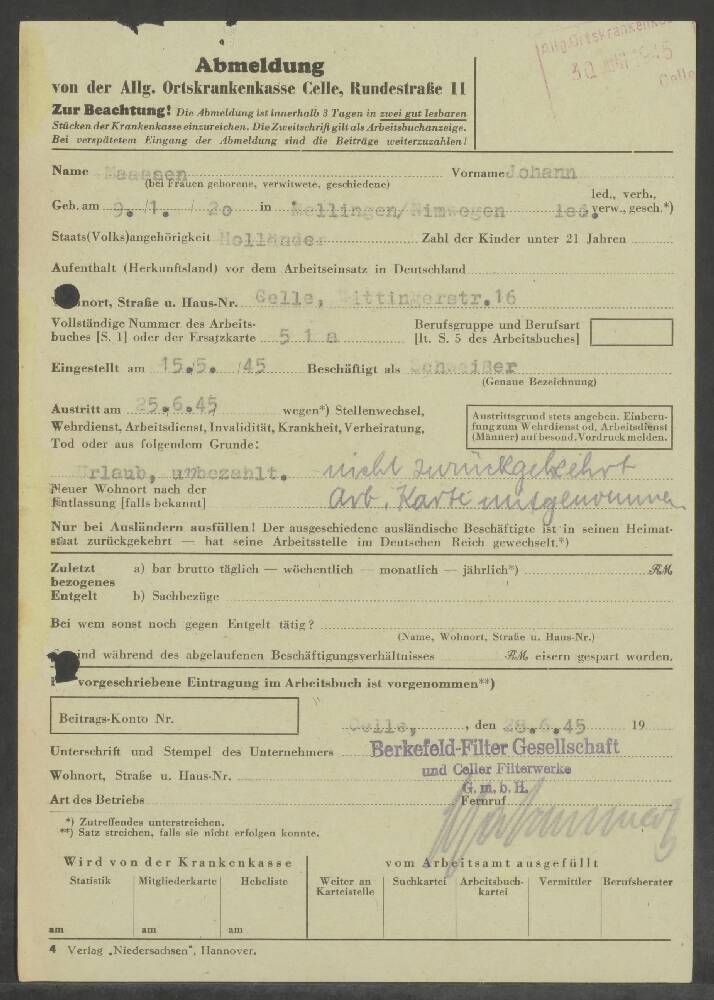 Allg. Ortskrankenkasse
30. 1945
Celle
Abmeldung
von der Allg. Ortskrankenkasse Celle, Rundestraße 11
Zur Beachtung! Die Abmeldung ist innerhalb 3 Tagen in zwei gut lesbaren
Stücken der Krankenkasse einzureichen. Die Zweitschrift gilt als Arbeitsbuchanzeige.
Bei verspätetem Eingang der Abmeldung sind die Beiträge weiterzuzahlen!
Name Maassen Vorname Johann
(bei Frauen geborene, verwitwete, geschiedene)
led., verh.,
Geb. am 9. /1. / 20 in Mellingen/Nimwegen led. verw., gesch.*)
Staats(Volks)angehörigkeit Holländer Zahl der Kinder unter 21 Jahren
Aufenthalt (Herkunftsland) vor dem Arbeitseinsatz in Deutschland
Wohnort, Straße u. Haus-Nr. Celle, Wittingerstr. 16
Vollständige Nummer des Arbeits- Berufsgruppe und Berufsart
buches [S. 1] oder der Ersatzkarte 5 1 a [lt. S. 5 des Arbeitsbuches]
Eingestellt am 15./5. /45 Beschäftigt als Schweißer
(Genaue Bezeichnung)
Austritt am 25.6.45 wegen*) Stellenwechsel,
Wehrdienst, Arbeitsdienst, Invalidität, Krankheit, Verheiratung,
Tod oder aus folgendem Grunde:
Austrittsgrund stets angeben. Einberu-
fung zum Wehrdienst od. Arbeitsdienst
(Männer) auf besond. Vordruck melden.
Urlaub, unbezahlt. nicht zurückgekehrt
Neuer Wohnort nach der
Entlassung [falls bekannt] Arb. Karte mitgenommen
Nur bei Ausländern ausfüllen! Der ausgeschiedene ausländische Beschäftigte ist in seinen Heimat-
staat zurückgekehrt — hat seine Arbeitsstelle im Deutschen Reich gewechselt.*)
Zuletzt a) bar brutto täglich — wöchentlich — monatlich — jährlich*) RM
bezogenes
Entgelt b) Sachbezüge
Bei wem sonst noch gegen Entgelt tätig?
(Name, Wohnort, Straße u. Haus-Nr.)
Sind während des abgelaufenen Beschäftigungsverhältnisses RM eisern gespart worden.
vorgeschriebene Eintragung im Arbeitsbuch ist vorgenommen**)
Beitrags-Konto Nr.
Celle, , den 28.6.45 19
Unterschrift und Stempel des Unternehmers Berkefeld-Filter Gesellschaft
und Celler Filterwerke
Wohnort, Straße u. Haus-Nr.
G. m. b. H.
Art des Betriebs Fernruf
*) Zutreffendes unterstreichen.
**) Satz streichen, falls sie nicht erfolgen konnte.
Wird von der Krankenkasse vom Arbeitsamt ausgefüllt
Statistik Mitgliederkartei Hebeliste Weiter an Karteistelle Suchkartei Arbeitsbuch-kartei Vermittler Berufsberater
am am am
4 Verlag „Niedersachsen“, Hannover.